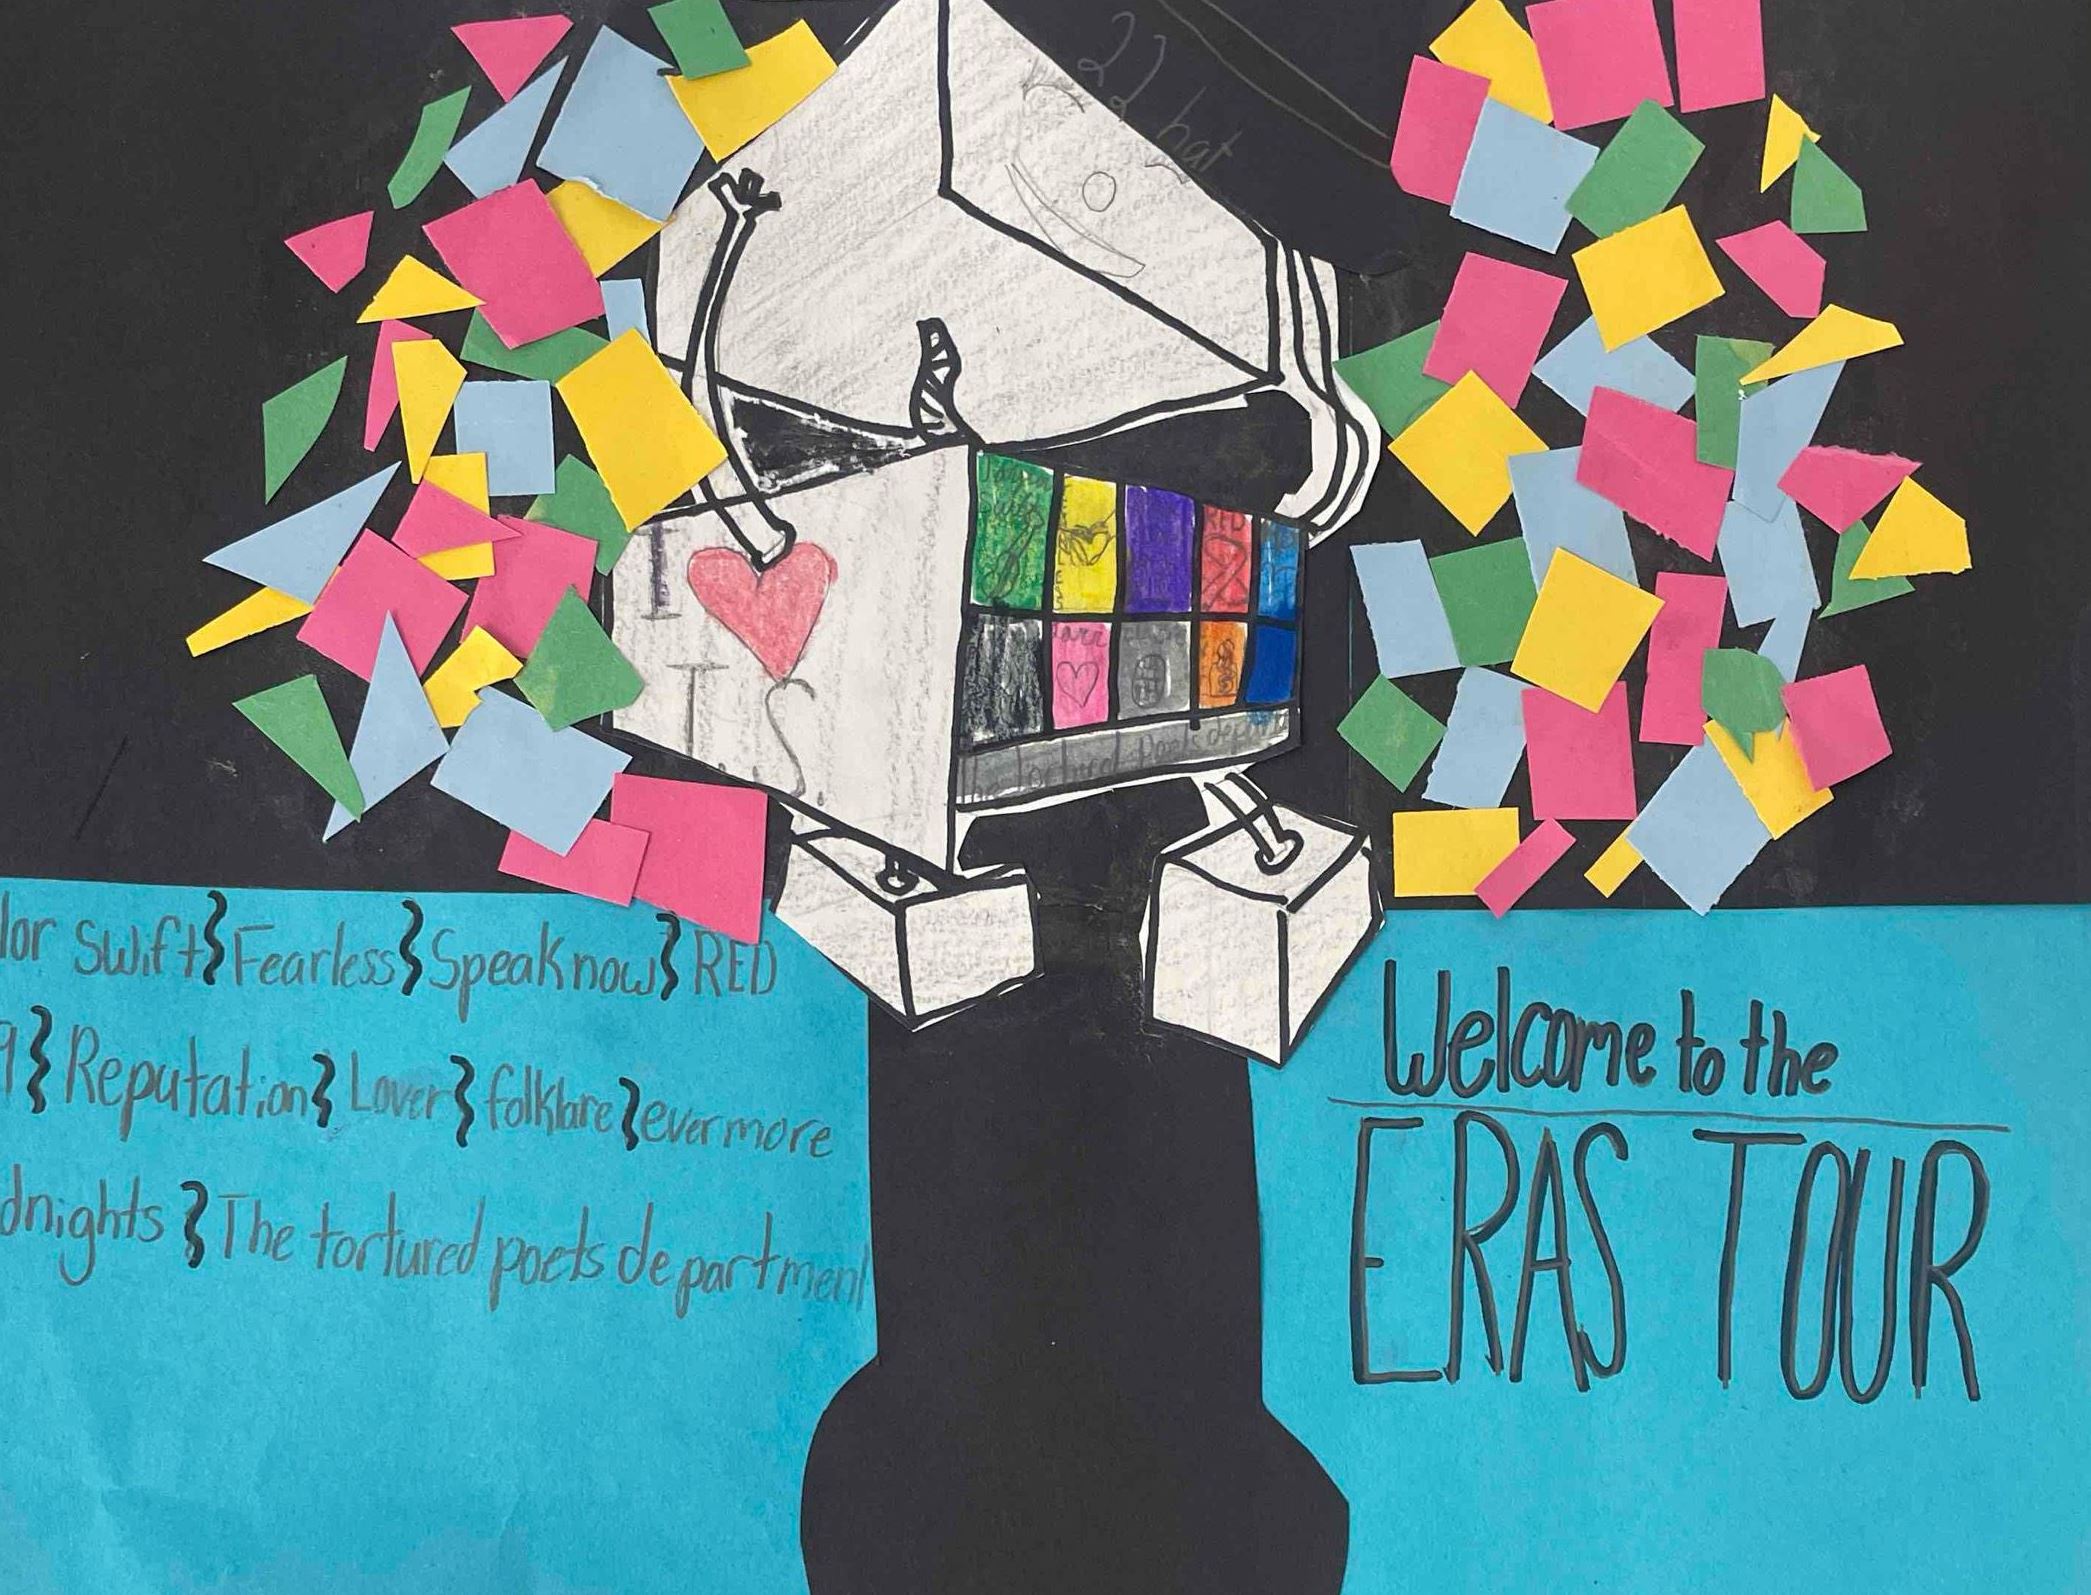 22 hat
I
T.S.
RED
The tortured Poets depart
lor Swift } Fearless } Speak now } RED
9 } Reputation } Lover } folklore } evermore
dnights } The tortured poets department
Welcome to the
ERAS TOUR